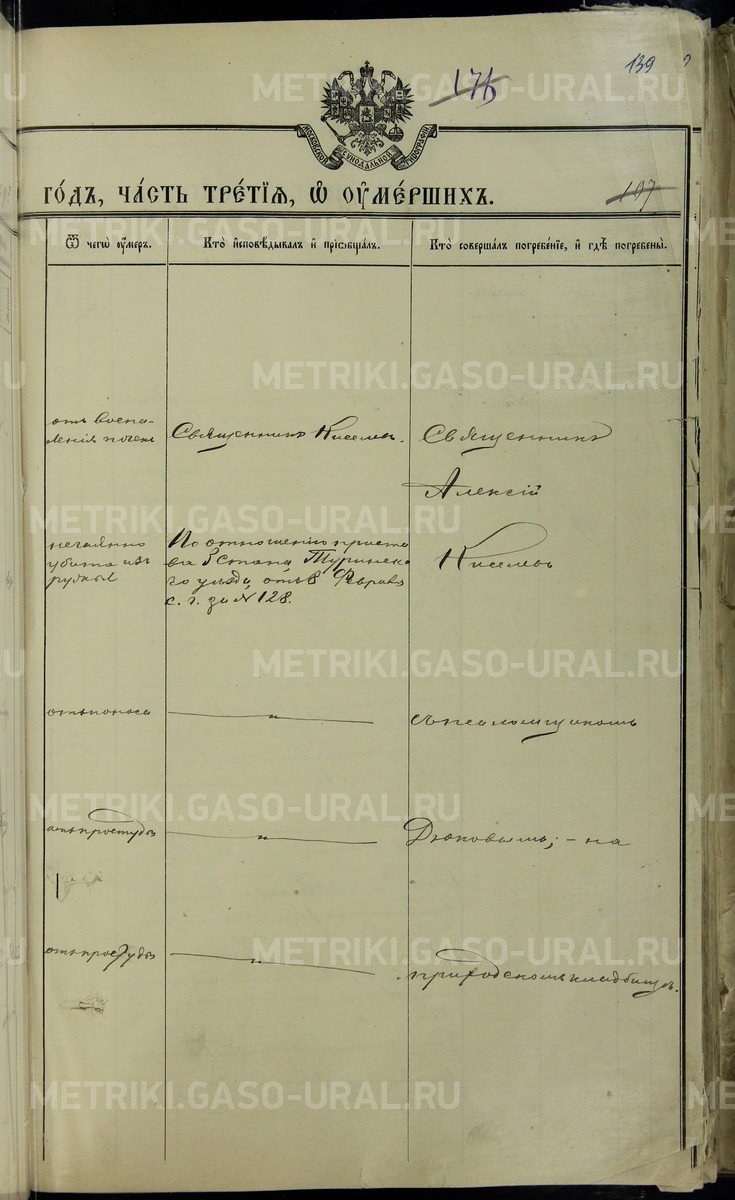 139
176
МОСКОВСКОЙ СѴНОДАЛЬНОЙ ТИПОГРАФІИ
197
ГО́ДЪ, ЧА́СТЬ ТРЕ́ТІЯ, Ѽ ОУ҆МЕ́РШИХЪ.
Ѿ чегѡ̀ ᲂу҆́меръ.
Кто̀ и҆сповѣ́дывалъ и҆ прїѡбща́лъ.
Кто̀ соверша́лъ погребе́нїе, и҆ гдѣ̀ погребены̀.
отъ воспа-
ленія почекъ
Священникъ Киселевъ.
Священникъ
Алексій
Киселевъ
нечаянно
убитъ изъ
ружья
По отношенію приста
ва 5 стана, Туринска
го уѣзда, отъ 8 Февраля
с. г. за № 128.
отъ поноса
— " —
съ псаломщикомъ
отъ простуды
— " —
Дюковымъ; – на
отъ простуды
— " —
приходскомъ кладбищѣ.
METRIKI.GASO-URAL.RU